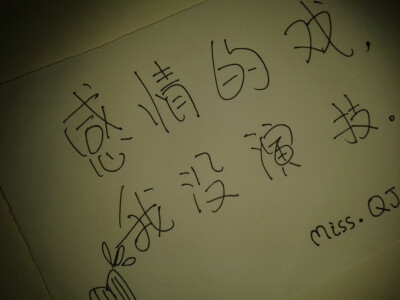 感情的戏，
我没演技。
Miss.QJ